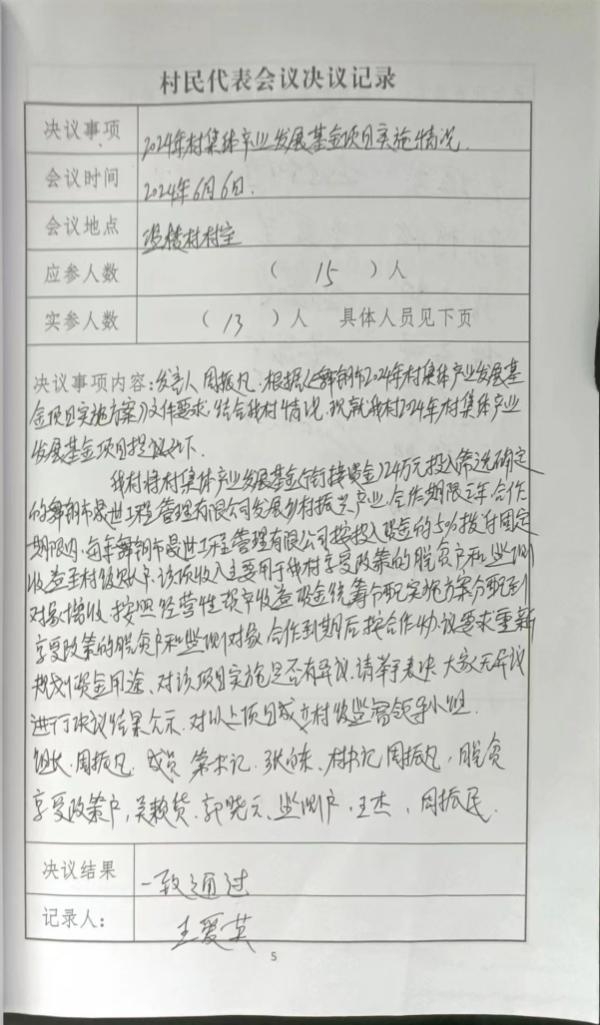 村民代表会议决议记录
决议事项 2024年村集体产业发展基金项目实施情况.
会议时间 2024年6月6日.
会议地点 村村室
应参人数 （ 15 ）人
实参人数 （ 13 ）人 具体人员见下页
决议事项内容:发言人周振凡.根据《舞钢市2024年村集体产业发展基
金项目实施方案》文件要求,结合我村情况,现就我村2024年村集体产业
发展基金项目提议如下.
我村将村集体产业发展基金(衔接资金)24万元投入筛选确定
的舞钢市晟世工程管理有限公司发展乡村振兴产业,合作期限三年,合作
期限内,每年舞钢市晟世工程管理有限公司按投入资金的5%拨付固定
收益至村级账户.该项收入主要用于我村享受政策的脱贫户和监测
对象增收,按照经营性资产收益资金统筹分配实施方案分配到
享受政策的脱贫户和监测对象.合作到期后按合作协议要求重新
规划资金用途、对该项目实施是否有异议.请举手表决,大家无异议
进行决议结果公示.对以上项目成立村级监督领导小组.
组长.周振凡.成员 第一书记.张 、村书记周振凡,脱贫
享受政策户,吴 货.郭晓云、监测户,王杰,周振民.
决议结果 一致通过
记录人: 王爱英
5